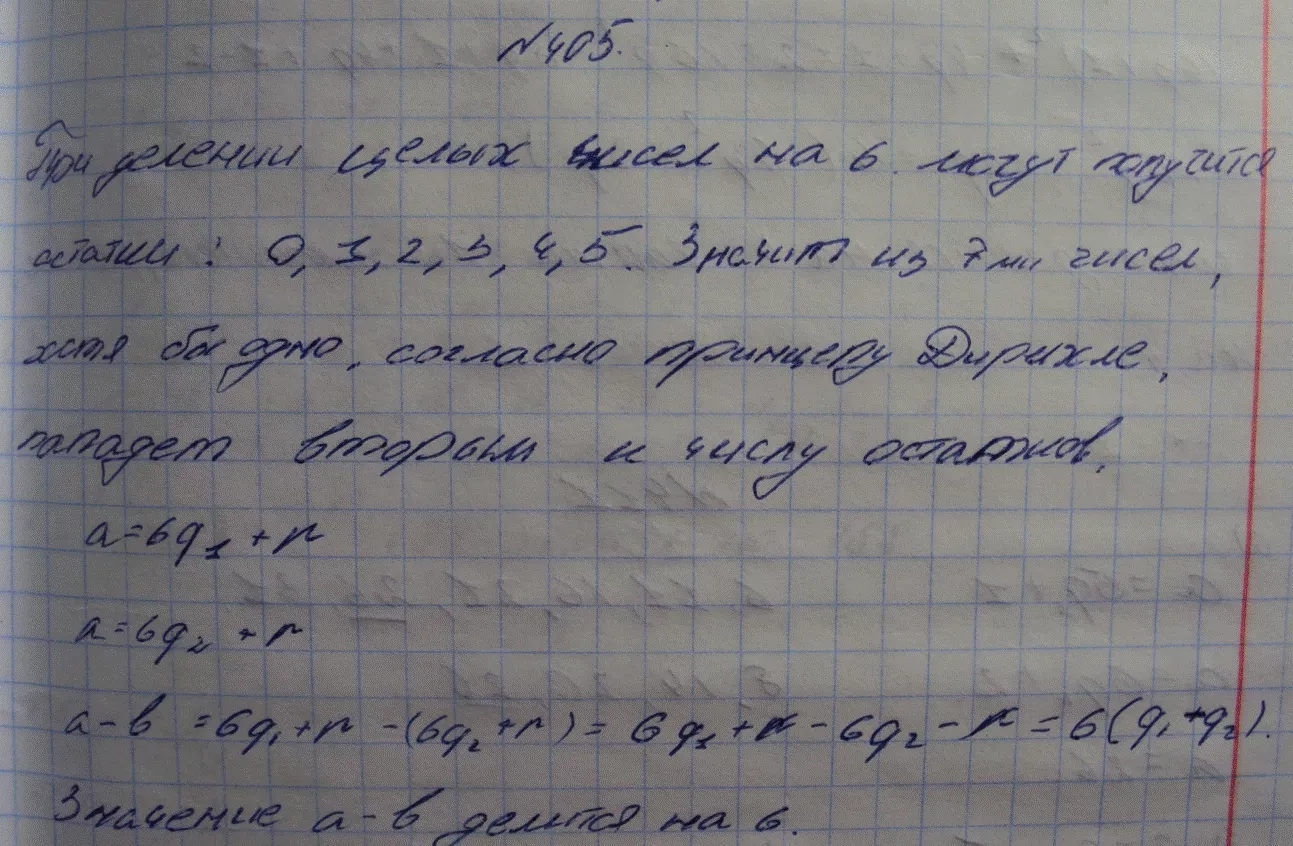 №405.
При делении целых чисел на 6 могут получится
остатки: 0, 1, 2, 3, 4, 5. Значит из 7ми чисел,
хотя бы одно, согласно принцепу Дирихле,
попадет вторым к числу остатков.
a=6q₁+r
a=6q₂+r
a-b=6q₁+r-(6q₂+r)=6q₁+r-6q₂-r=6(q₁+q₂).
Значение a-b делится на 6.